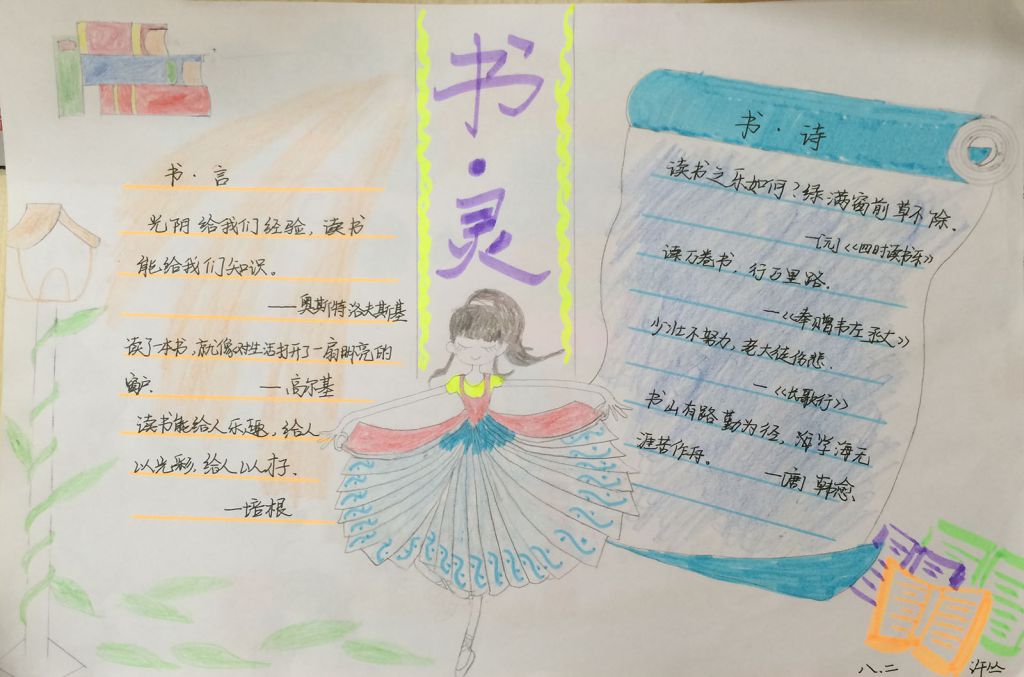 书·灵
书·言
光阴给我们经验，读书
能给我们知识。
——奥斯特洛夫斯基
读了一本书，就像对生活打开了一扇明亮的
窗户.
—高尔基
读书能给人乐趣，给人
以光彩，给人以才干.
—培根
书·诗
读书之乐如何？绿满窗前草不除.
—[元]《四时读书乐》
读万卷书，行万里路.
—《奉赠韦左丞丈》
少壮不努力，老大徒伤悲.
—《长歌行》
书山有路勤为径，学海无
涯苦作舟。
—[唐]韩愈.
八.二